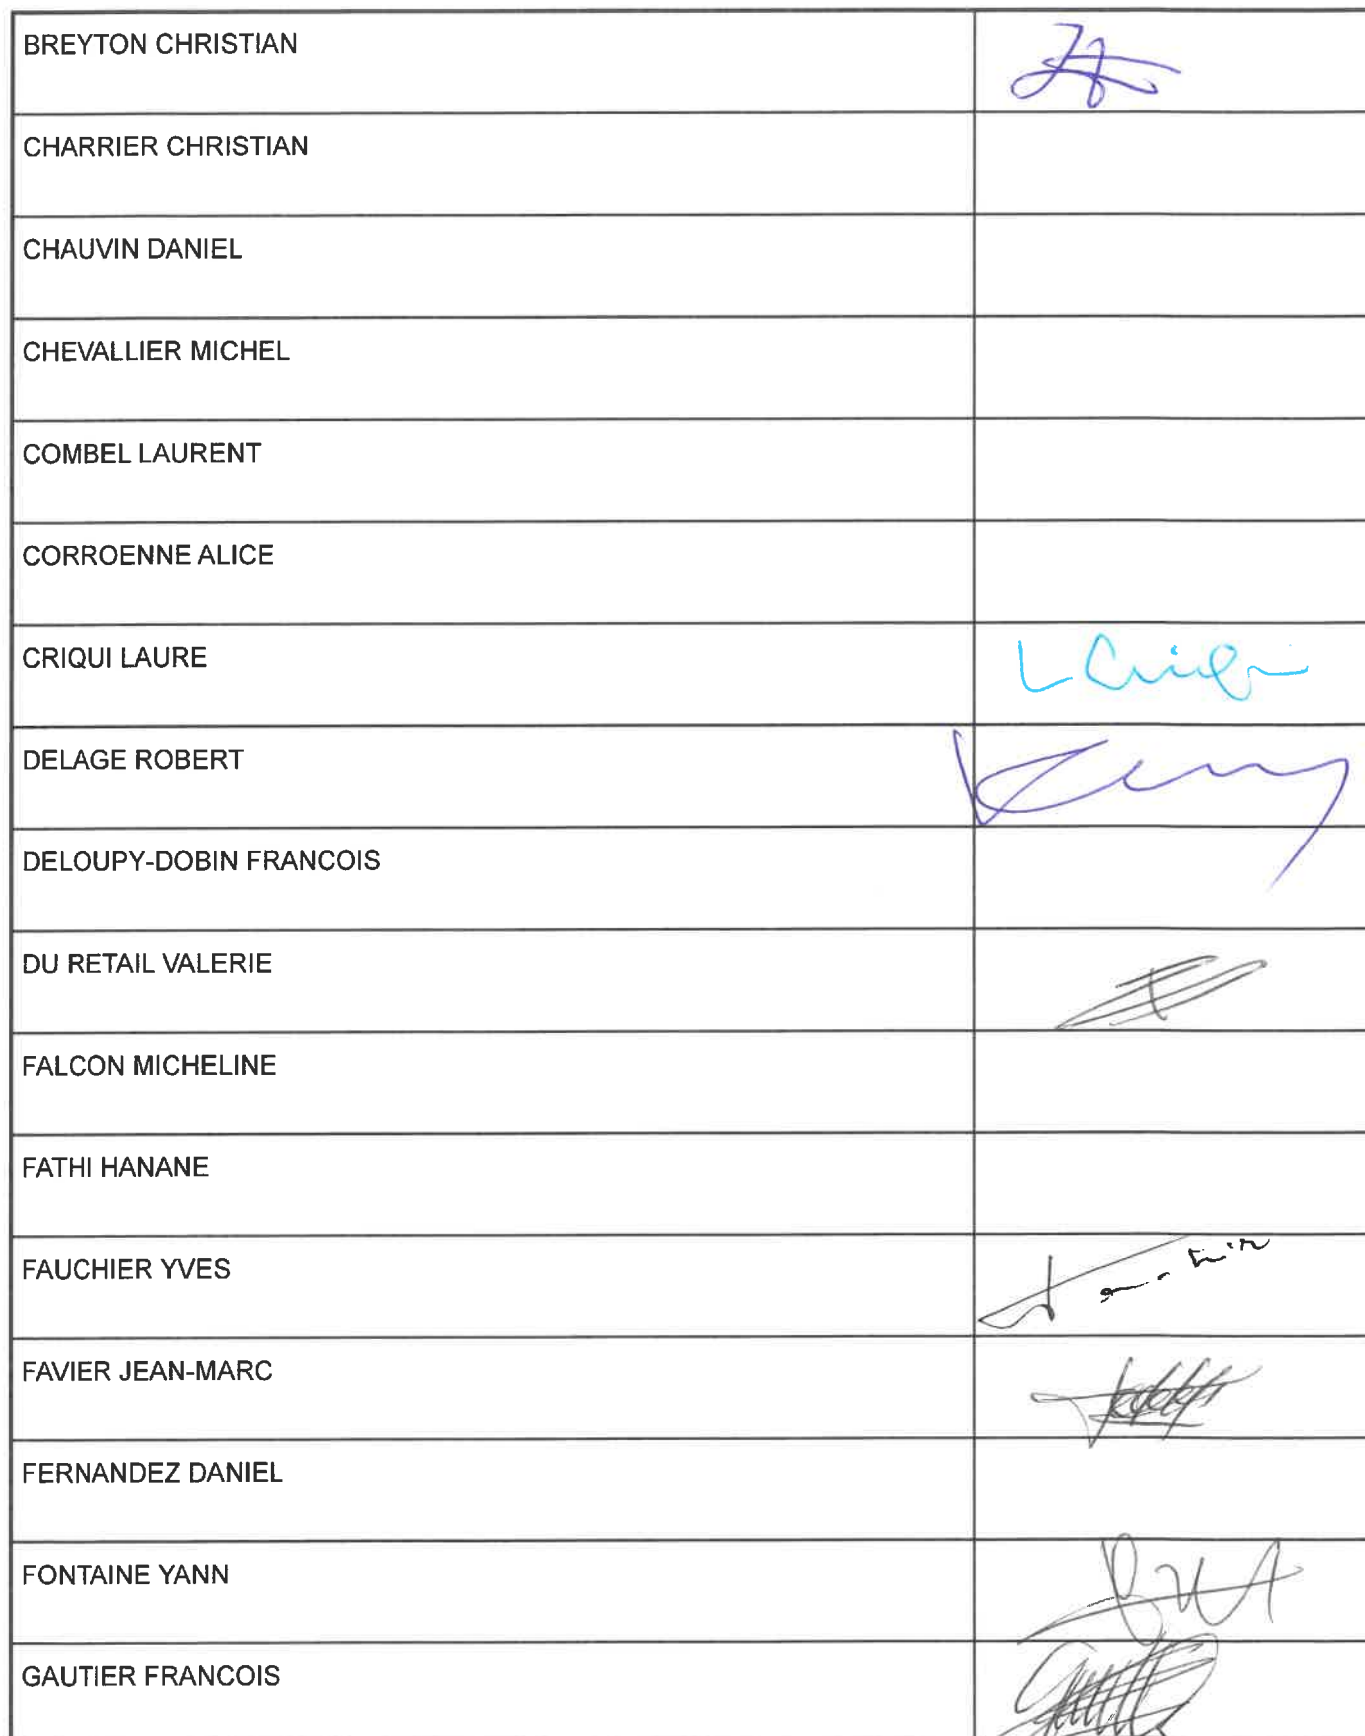 BREYTON CHRISTIAN
CHARRIER CHRISTIAN
CHAUVIN DANIEL
CHEVALLIER MICHEL
COMBEL LAURENT
CORROENNE ALICE
CRIQUI LAURE
L Criqui
DELAGE ROBERT
DELOUPY-DOBIN FRANCOIS
DU RETAIL VALERIE
FALCON MICHELINE
FATHI HANANE
FAUCHIER YVES
FAVIER JEAN-MARC
FERNANDEZ DANIEL
FONTAINE YANN
GAUTIER FRANCOIS